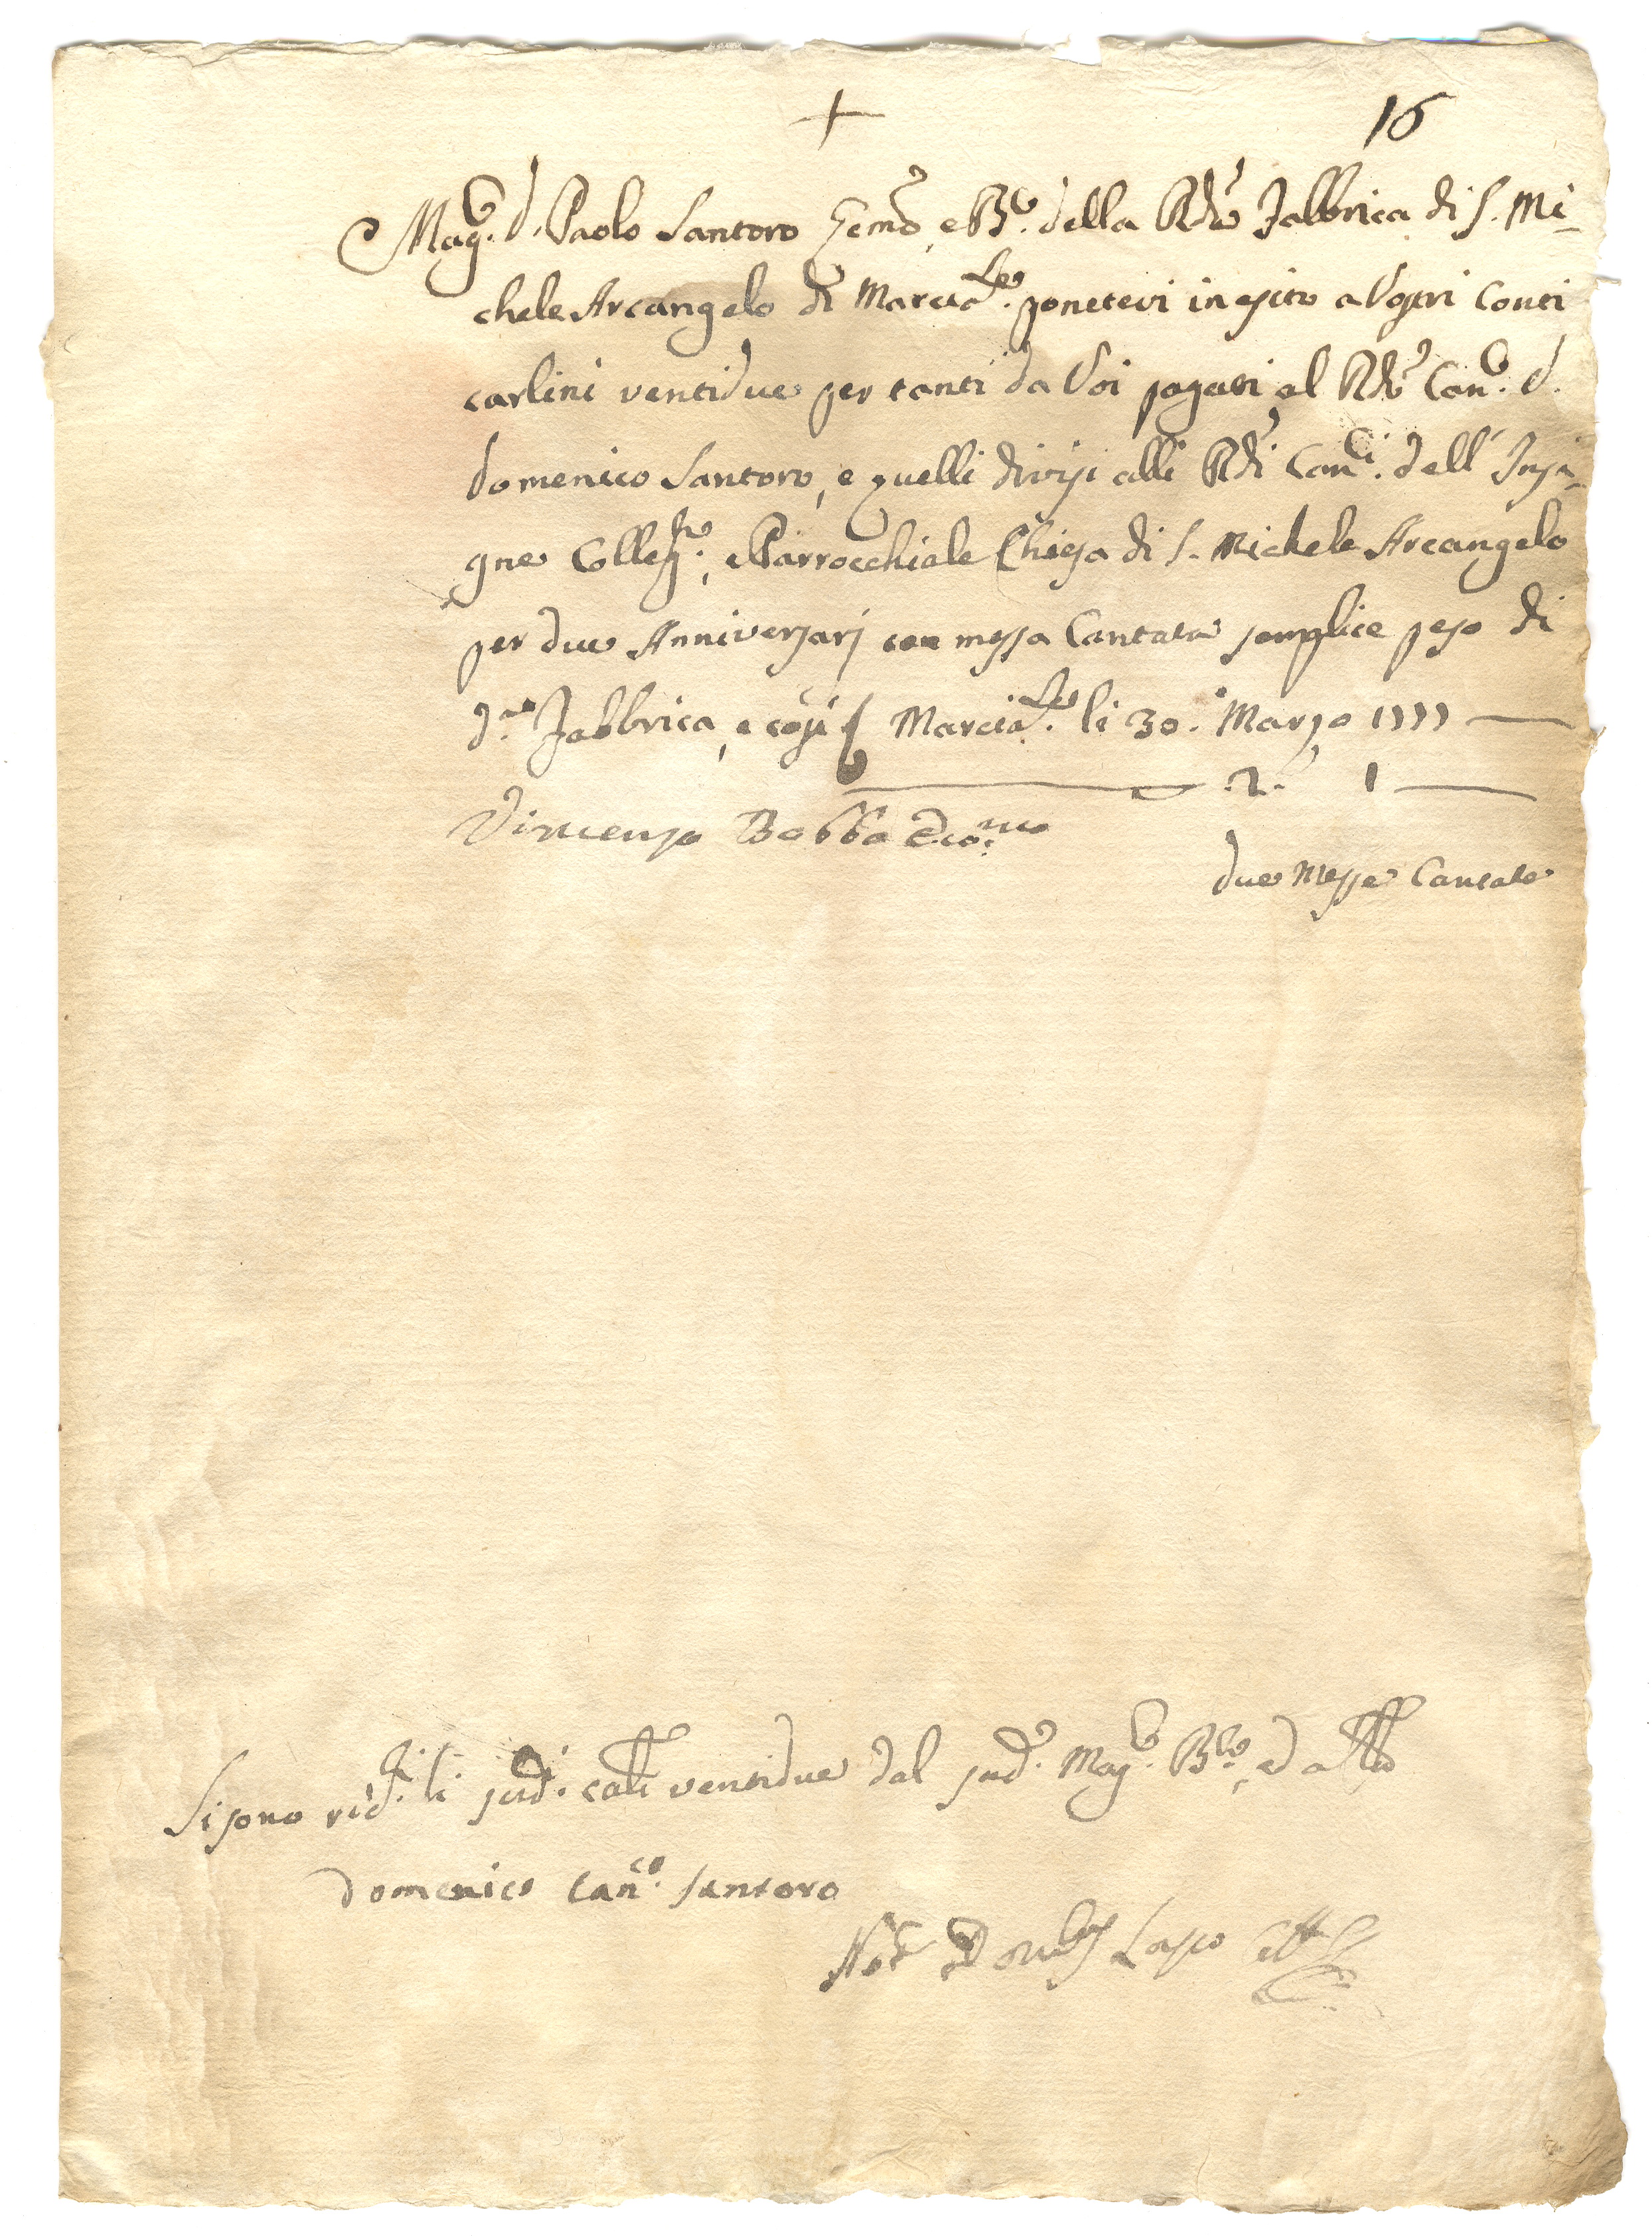 + 16
Mag.co d. Paolo Santoro e B.le della Rda Fabbrica di S. Mi-
chele Arcangelo di Marcia.se ponetevi in esito a Vostri Conti
carlini ventidue per tanti da Voi pagati al Rdo Can.co d.
Domenico Santoro, e quelli divisi alli Rdi Can.ci dell' Insi-
gne Colleg.ta, e Parrocchiale Chiesa di S. Michele Arcangelo
per due Anniversarj con messa Cantata semplice peso di
d.ta Fabbrica, e così Marcia.se li 30. Marzo 1777
2. 1
Vincenzo Bobba Eco.mo
due Messe Cantate
Si sono li sud.i ventidue dal sud.o Mag.co B.le, ed
Domenico Can.co Santoro